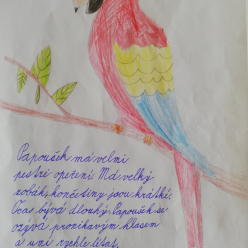 Papoušek má velmi
pestré opeření. Má velký
zobák, končetiny jsou krátké.
Ocas bývá dlouhý. Papoušek se
ozývá pronikavým hlasem
a umí rychle létat.